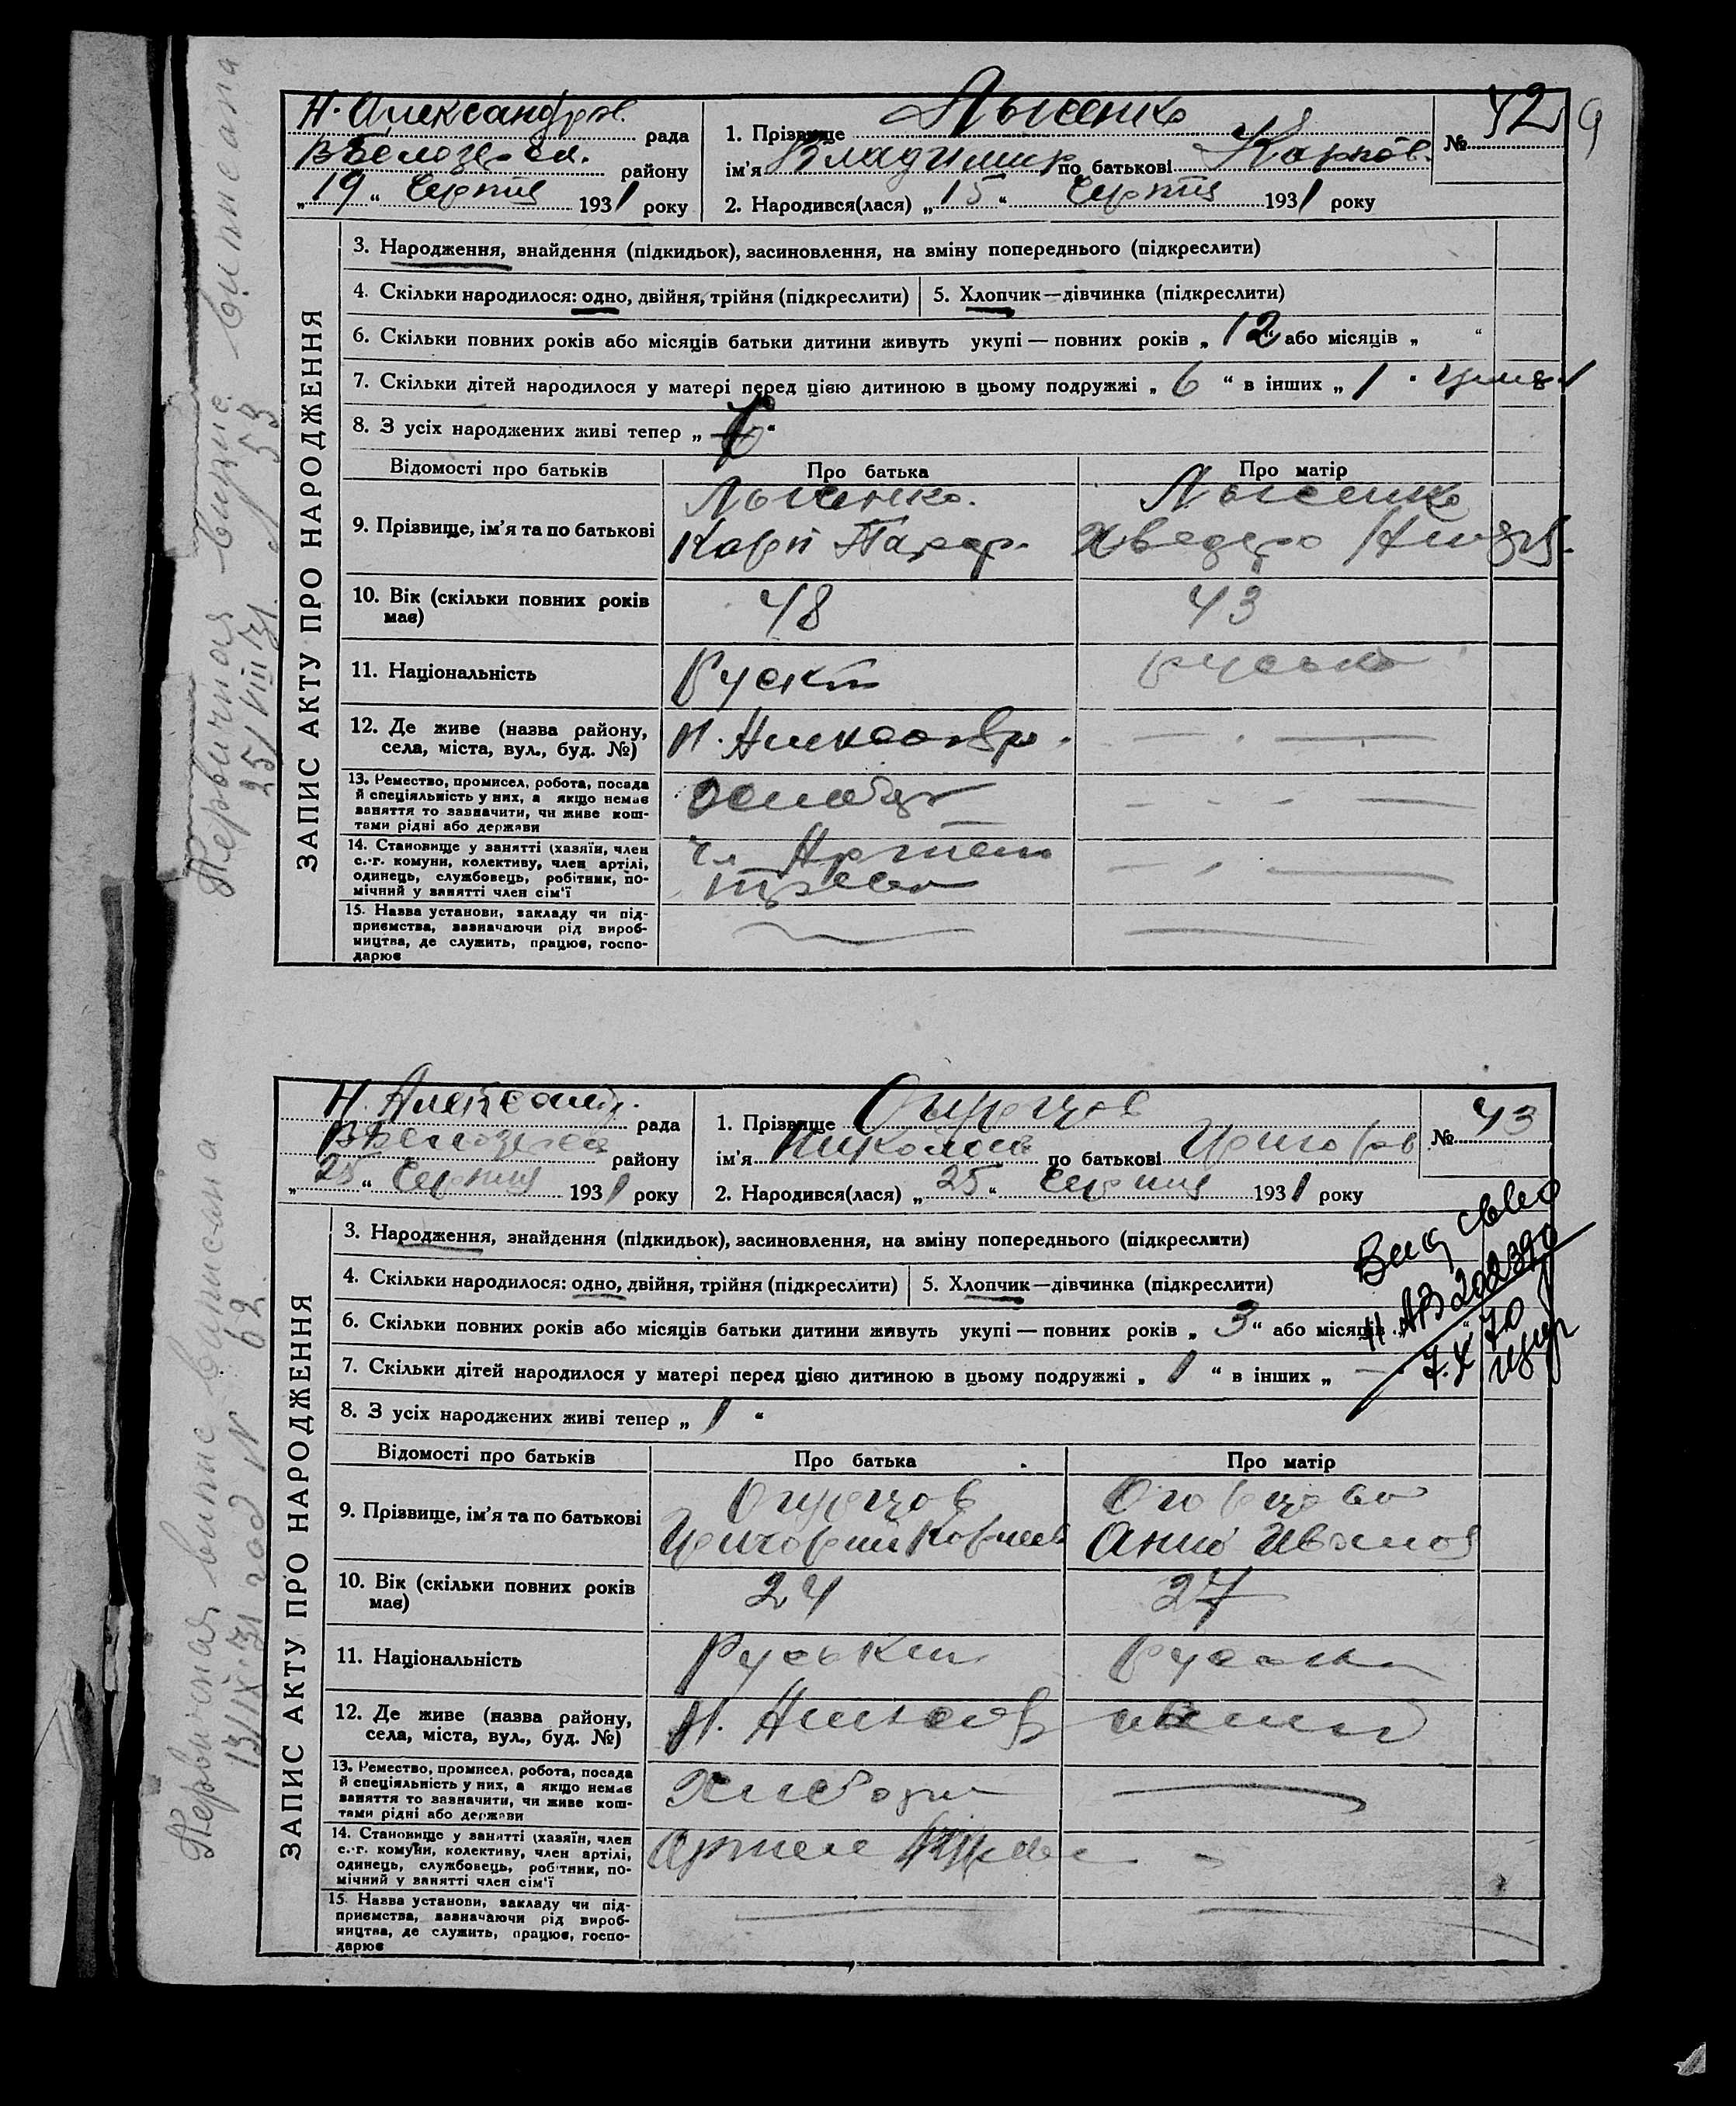 9
Н. Александров. рада
В Белозе района району
„ 19 “ Серпня 1931 року
1. Прізвище Лысенко
ім'я Владимир по батькові Карпов.
2. Народився(лася) „ 15 “ Серпня 1931 року
№ 42
ЗАПИС АКТУ ПРО НАРОДЖЕННЯ
3. Народження, знайдення (підкидьок), засиновлення, на зміну попереднього (підкреслити)
4. Скільки народилося: одно, двійня, трійня (підкреслити)
5. Хлопчик—дівчинка (підкреслити)
6. Скільки повних років або місяців батьки дитини живуть укупі — повних років „ 12 “ або місяців „ “
7. Скільки дітей народилося у матері перед цією дитиною в цьому подружжі „ 6 “ в інших „ 1
8. З усіх народжених живі тепер „ “
Відомості про батьків
Про батька
Про матір
9. Прізвище, ім'я та по батькові
Лысенко.
Карп
Лысенко
10. Вік (скільки повних років
має)
48
43
11. Національність
12. Де живе (назва району,
села, міста, вул., буд. №)
Н.
13. Ремество, промисел, робота, посада
й спеціяльність у них, а якщо немає
заняття то зазначити, чи живе кош-
тами рідні або держави
14. Становище у занятті (хазяїн, член
с.-г. комуни, колективу, член артілі,
одинець, службовець, робітник, по-
мічний у занятті член сім'ї
чл Артели
15. Назва установи, закладу чи під-
приємства, зазначаючи рід вироб-
ництва, де служить, працює, госпо-
дарює
Первичная выпис. выписана
25/VIII 31. N 53
Н. Александ. рада
району
„ 25 “ Серпня 1931 року
1. Прізвище Огурцов
ім'я Николай по батькові Григоров
2. Народився(лася) „ 25 “ Серпня 1931 року
№ 43
ЗАПИС АКТУ ПРО НАРОДЖЕННЯ
3. Народження, знайдення (підкидьок), засиновлення, на зміну попереднього (підкреслити)
4. Скільки народилося: одно, двійня, трійня (підкреслити)
5. Хлопчик—дівчинка (підкреслити)
6. Скільки повних років або місяців батьки дитини живуть укупі — повних років „ 3 “ або місяців
7. Скільки дітей народилося у матері перед цією дитиною в цьому подружжі „ 1 “ в інших „ —
8. З усіх народжених живі тепер „ 1 “
7.X 70
Відомості про батьків
Про батька
Про матір
9. Прізвище, ім'я та по батькові
Огурцов
Григорий
Анна Иванов
10. Вік (скільки повних років
має)
24
27
11. Національність
Руський
12. Де живе (назва району,
села, міста, вул., буд. №)
Н.
13. Ремество, промисел, робота, посада
й спеціяльність у них, а якщо немає
заняття то зазначити, чи живе кош-
тами рідні або держави
Хлебороб
14. Становище у занятті (хазяїн, член
с.-г. комуни, колективу, член артілі,
одинець, службовець, робітник, по-
мічний у занятті член сім'ї
15. Назва установи, закладу чи під-
приємства, зазначаючи рід вироб-
ництва, де служить, працює, госпо-
дарює
Первичная выпис выписана
13/IX-31 год N 62